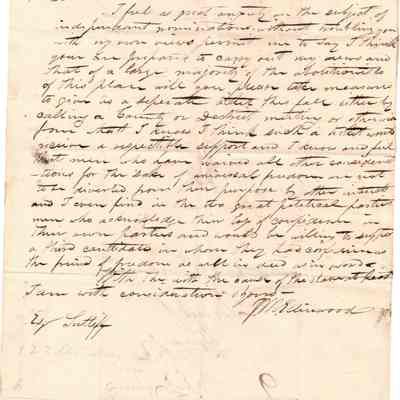 I feel as great anxiety on the subject of
independent nominations without troubling you
with my own views permit me to say I think
you are prepared to carry out my views and
that of a large majority of the abolitionists
of this place will you please take measures
to give us a seperate ticket this fall either by
calling a County or District meeting or otherwise
from what I know I think such a ticket would
receive a respectable support and I know and feel
that men who have waived all other considerat
-ions for the sake of universal freedom are not
to be diverted from their purpose by other interests
and I even find in the two great political parties
men who acknowledge their lack of confidence in
their own Parties and would be willing to support
a third candidate in whom they had confidence
the friend of freedom as well in deed as in word
with the cause of the slave at heart
I am with consideration yours
Edinwood
Esq Sutliff